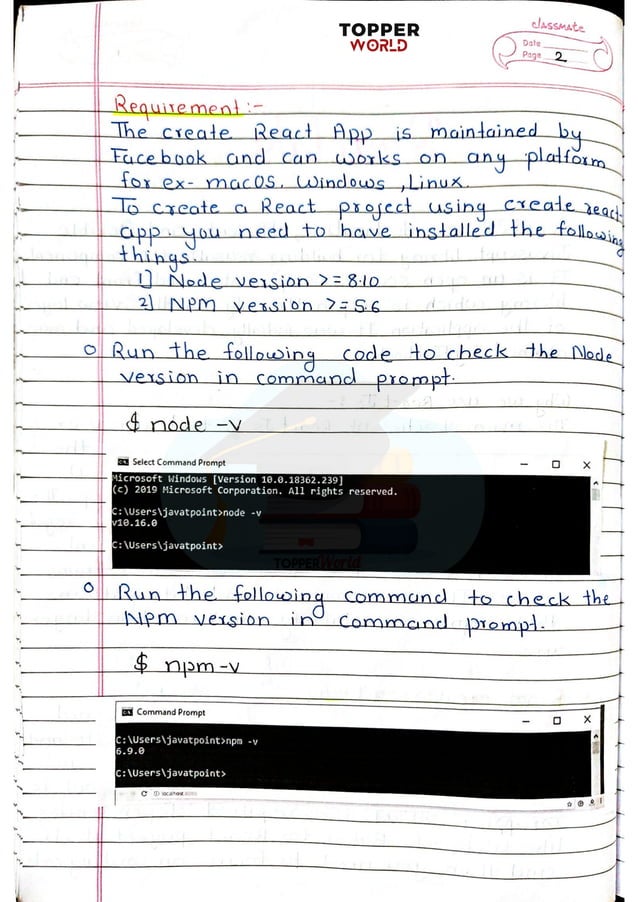 TOPPER
WORLD
classmate
Date
Page 2
Requirement :-
The create React App is maintained by
Facebook and can works on any platform
for ex- macOS, Windows ,Linux.
To create a React project using create react-
app. you need to have installed the following
things.
1) Node version >= 8.10
2) NPM version >= 5.6
o Run the following code to check the Node
version in command prompt.
$ node -v
Select Command Prompt
Microsoft Windows [Version 10.0.18362.239]
(c) 2019 Microsoft Corporation. All rights reserved.
C:\Users\javatpoint>node -v
v10.16.0
C:\Users\javatpoint>
TOPPER World
o Run the following command to check the
NPM version in command prompt.
$ npm -v
Command Prompt
C:\Users\javatpoint>npm -v
6.9.0
C:\Users\javatpoint>